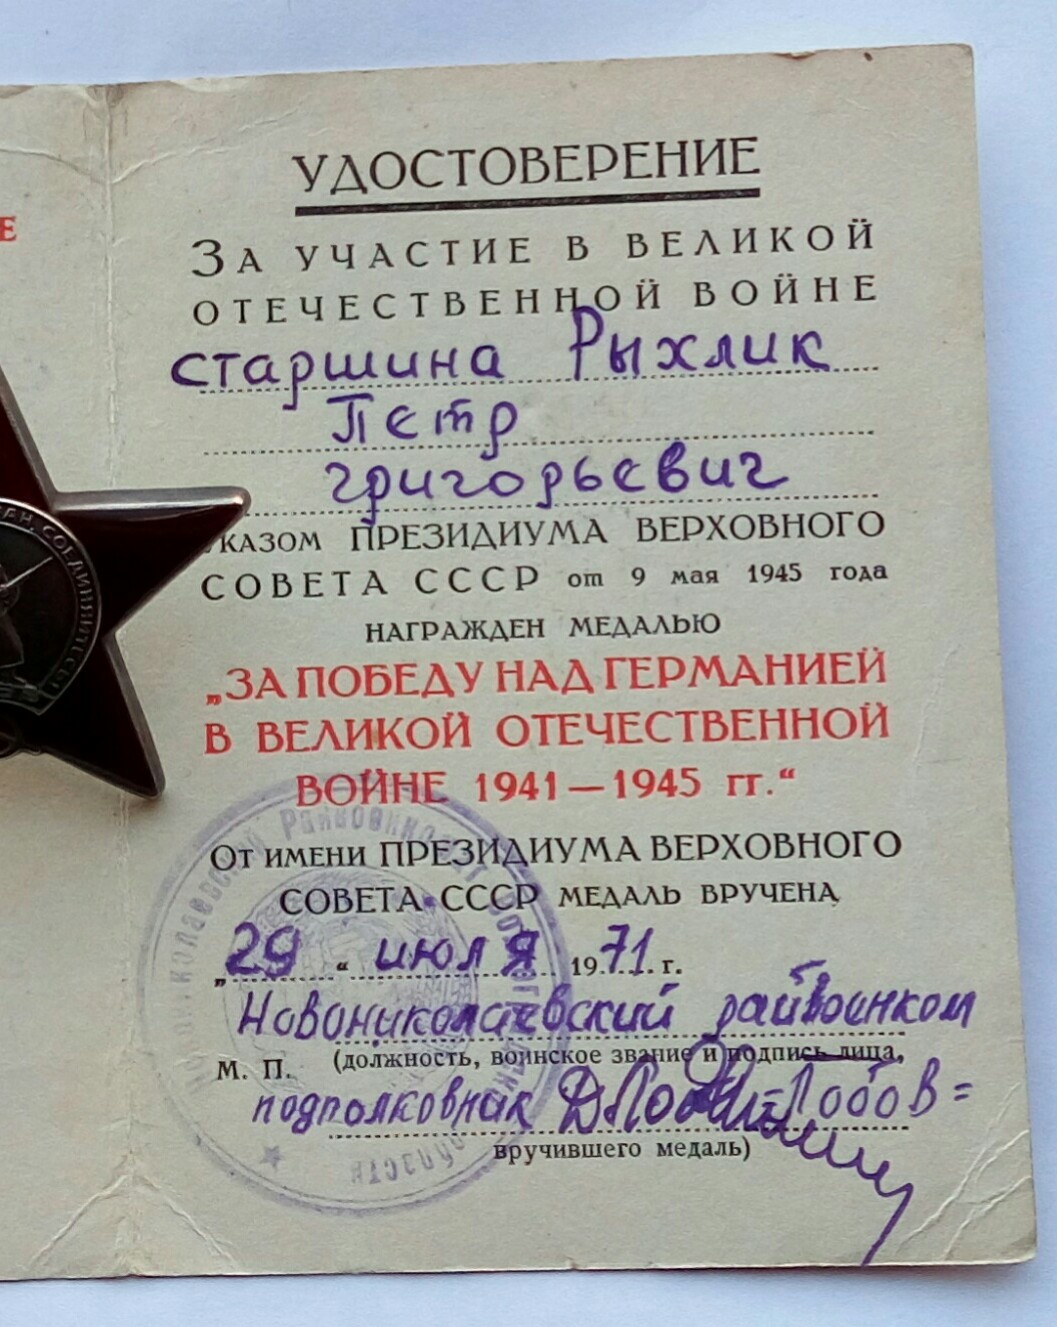 Е
УДОСТОВЕРЕНИЕ
ЗА УЧАСТИЕ В ВЕЛИКОЙ
ОТЕЧЕСТВЕННОЙ ВОЙНЕ
старшина Рыхлик
Петр
григорьевич
УКАЗОМ ПРЕЗИДИУМА ВЕРХОВНОГО
СОВЕТА СССР от 9 мая 1945 года
НАГРАЖДЕН МЕДАЛЬЮ
„ЗА ПОБЕДУ НАД ГЕРМАНИЕЙ
В ВЕЛИКОЙ ОТЕЧЕСТВЕННОЙ
ВОЙНЕ 1941—1945 гг.“
ОТ ИМЕНИ ПРЕЗИДИУМА ВЕРХОВНОГО
СОВЕТА СССР МЕДАЛЬ ВРУЧЕНА
„29“ июля 1971 г.
Новониколаевский райвоенком
М. П. (должность, воинское звание и подпись лица,
подполковник Лобов=
вручившего медаль)
СОЕДИНЯЙТЕСЬ
николаевский Райвоенкомат
области